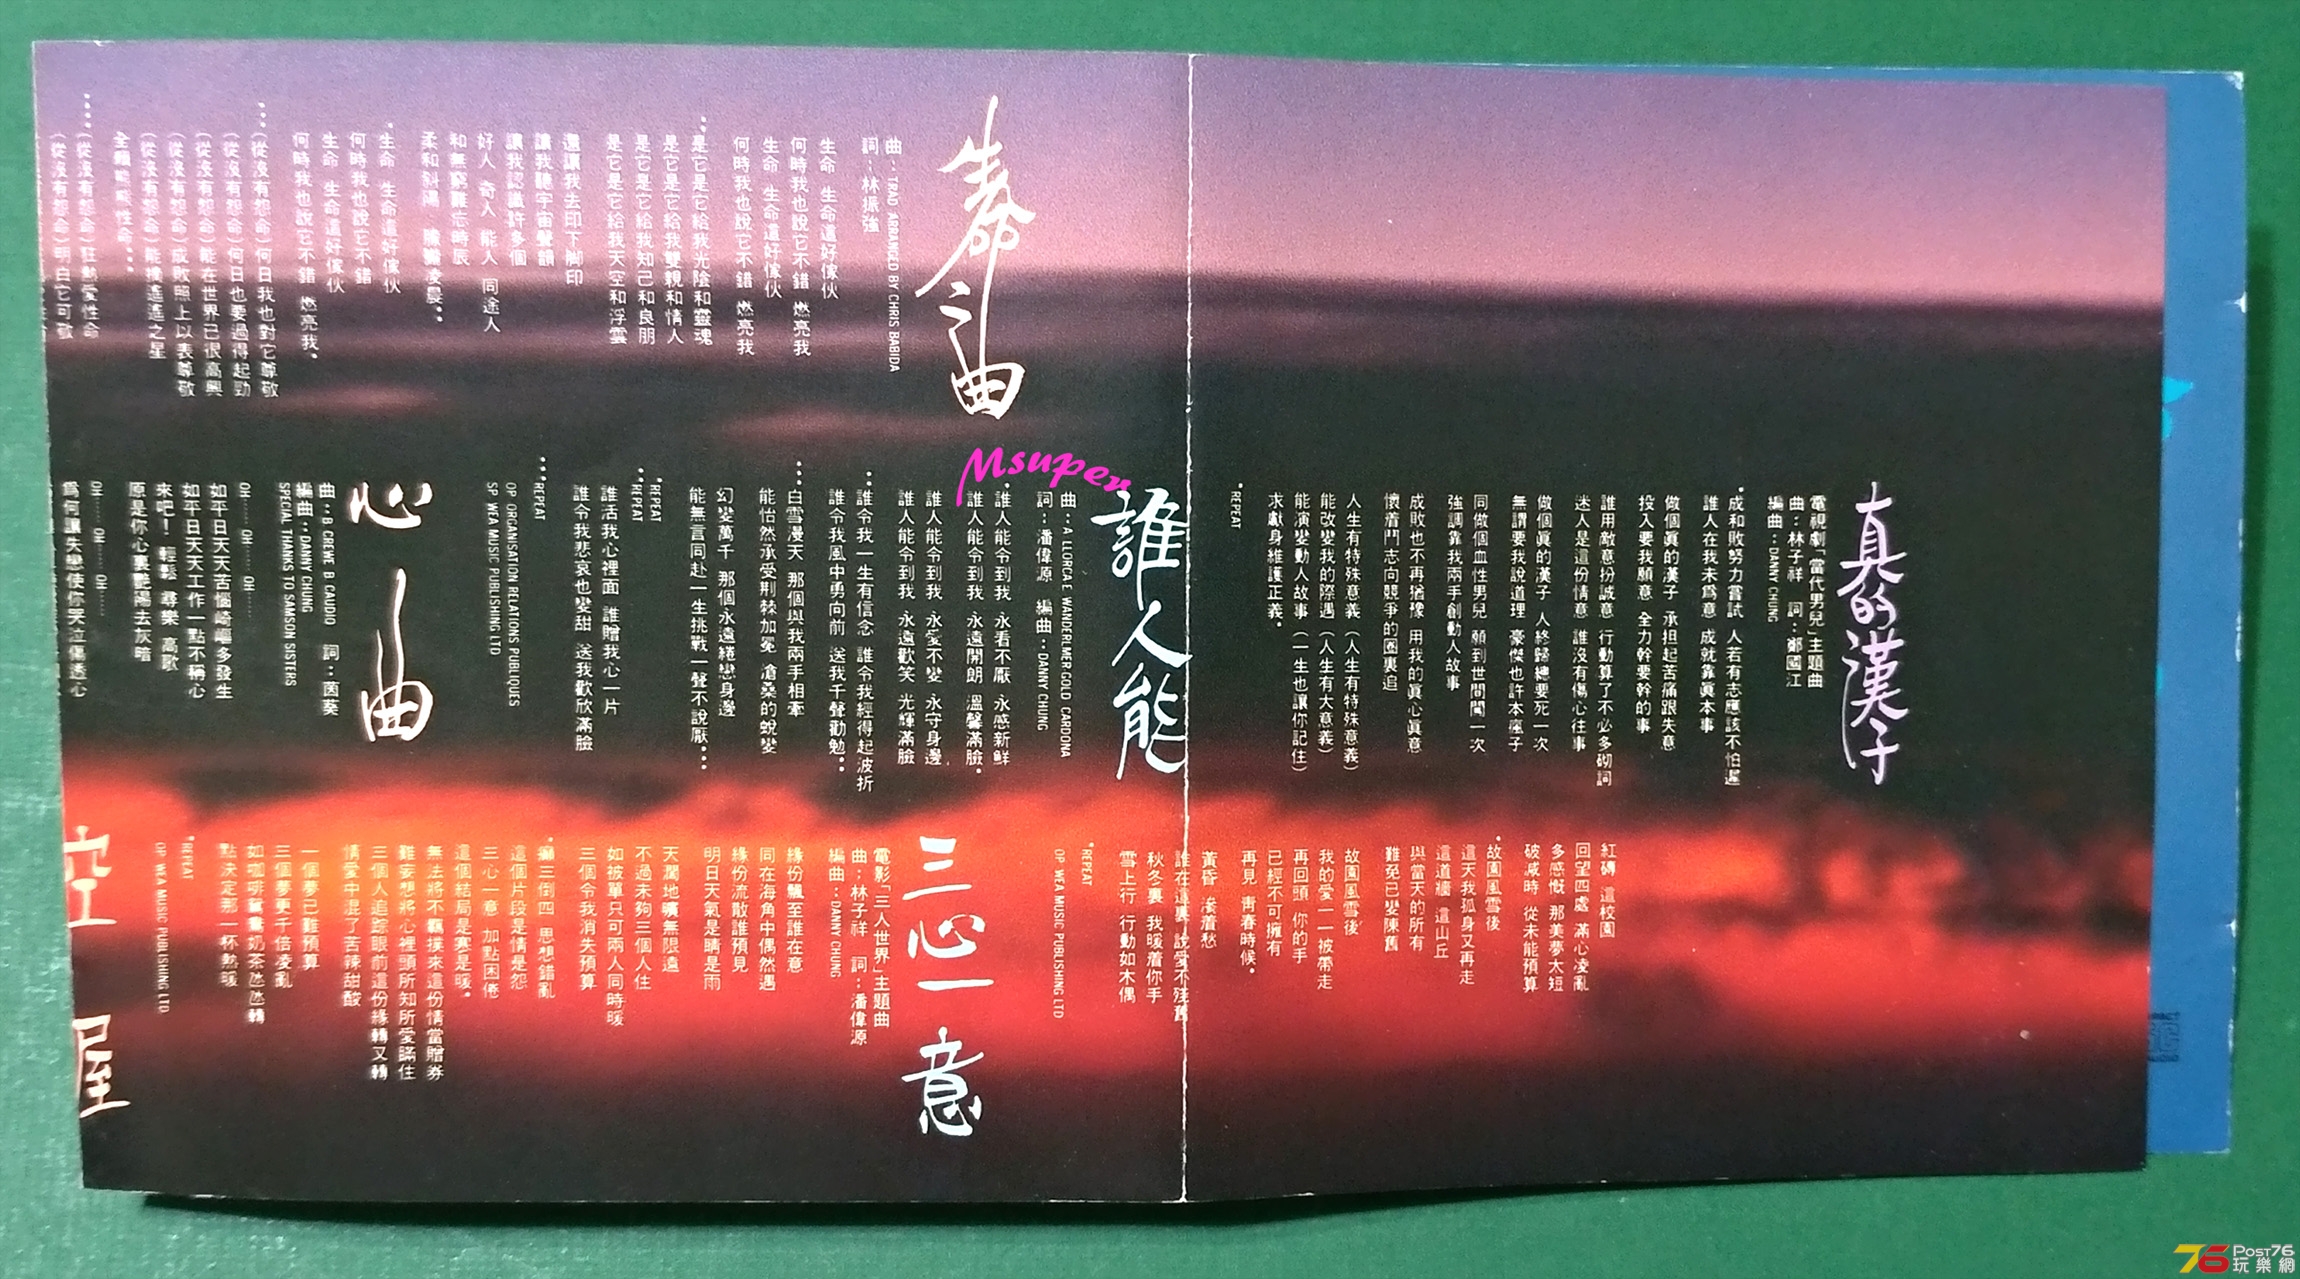 真的漢子
電視劇「當代男兒」主題曲
曲：林子祥 詞：鄭國江
編曲：DANNY CHUNG
*成和敗努力嘗試 人若有志應該不怕遲
誰人在我未爲意 成就靠眞本事
做個眞的漢子 承担起苦痛跟失意
投入要我願意 全力幹要幹的事
誰用敵意扮誠意 行動算了不必多砌詞
迷人是這份情意 誰沒有傷心往事
做個眞的漢子 人終歸總要死一次
無謂要我說道理 豪傑也許本瘋子
同做個血性男兒 願到世間闖一次
強調靠我兩手創動人故事
成敗也不再猶豫 用我的眞心眞意
懷着鬥志向競爭的圈裏追
人生有特殊意義（人生有特殊意義）
能改變我的際遇（人生有大意義）
能演變動人故事（一生也讓你記住）
求獻身維護正義。
*REPEAT
誰人能
曲：A LLORCA E WANDERIEMER-GOLD CARDONA
詞：潘偉源 編曲：DANNY CHUNG
*誰人能令到我 永看不厭 永感新鮮
誰人能令到我 永遠開朗 溫馨滿臉。
誰人能令到我 永愛不變 永守身邊
誰人能令到我 永遠歡笑 光輝滿臉
**誰令我一生有信念 誰令我經得起波折
誰令我風中勇向前 送我千聲勸勉…
***白雪漫天 那個與我兩手相牽
能怡然承受荆棘加冕 滄桑的蛻變
幻變萬千 那個永遠綣戀身邊
能無言同赴一生挑戰一聲不說厭…
*REPEAT
**REPEAT
誰活我心裡面 誰贈我心一片
誰令我悲哀也變甜 送我歡欣滿臉
***REPEAT
OP ORGANISATION RELATIONS PUBLIQUES
SP WEA MUSIC PUBLISHING LTD
生命之曲
曲：TRAD ARRANGED BY CHRIS BABIDA
詞：林振強
生命 生命這好傢伙
何時我也說它不錯 燃亮我
生命 生命這好傢伙
何時我也說它不錯 燃亮我
**是它是它給我光陰和靈魂
是它是它給我雙親和情人
是它是它給我知己和良朋
是它是它給我天空和浮雲
還讓我去印下脚印
讓我聽宇宙聲韻
讓我認識許多個
好人 奇人 能人 同途人
和無窮難忘時辰
柔和斜陽 朦朧淩晨…
*生命 生命這好傢伙
何時我也說它不錯
生命 生命這好傢伙
何時我也說它不錯 燃亮我。
***（從沒有怨命）何日我也對它尊敬
（從沒有怨命）何日也要過得起勁
（從沒有怨命）能在世界已很高興
（從沒有怨命）成敗照上以表尊敬
（從沒有怨命）能攘遙遙之星
全賴能熊性命…
****（從沒有怨命）狂熱愛性命
（從沒有怨命）明白它可敬
心曲
曲：B CREME B CAUDO 詞：茵葵
編曲：DANNY CHUNG
SPECIAL THANKS TO SAMSON SISTERS
OH…… OH…… OH……
如平日天天苦惱崎嶇多發生
如平日天天工作一點不稱心
來吧！ 輕鬆 尋樂 高歌
原是你心裏艷陽去灰暗
OH…… OH…… OH……
爲何讓失戀使你哭泣傷透心
紅磚 這校園
回望四處 滿心凌亂
多感慨 那美夢太短
破滅時 從未能預算
*故園風雪後
這天我孤身又再走
這道牆 這山丘
與當天的所有
難免已變陳舊
故園風雪後
我的愛一一被帶走
再回頭 你的手
已經不可擁有
再見 靑春時候。
黃昏 滲着愁
誰在這裏 說愛不殘舊
秋冬裏 我暖着你手
雪上行 行動如木偶
*REPEAT
OP WEA MUSIC PUBLISHING LTD
三心一意
電影「三人世界」主題曲
曲：林子祥 詞：潘偉源
編曲：DANNY CHUNG
緣份飄至誰在意
同在海角中偶然遇
緣份流散誰預見
明日天氣是晴是雨
天濶地曠無限遠
不過未夠三個人住
如被單只可兩人同時暖
三個令我消失預算
*顚三倒四 思想錯亂
這個片段是情是怨
三心一意 加點困倦
這個結局是寒是暖。
無法將不羈撲來這份情當贈券
難妄想將心裡頭所知所愛瞞住
三個人追踪眼前這份緣轉又轉
情愛中混了苦辣甜酸
一個夢已難預算
三個夢更千倍凌亂
如咖啡鴛鴦奶茶氹氹轉
點決定那一杯熱暖
*REPEAT
OP WEA MUSIC PUBLISHING LTD
空屋
Msuper
76 POST76
玩樂網